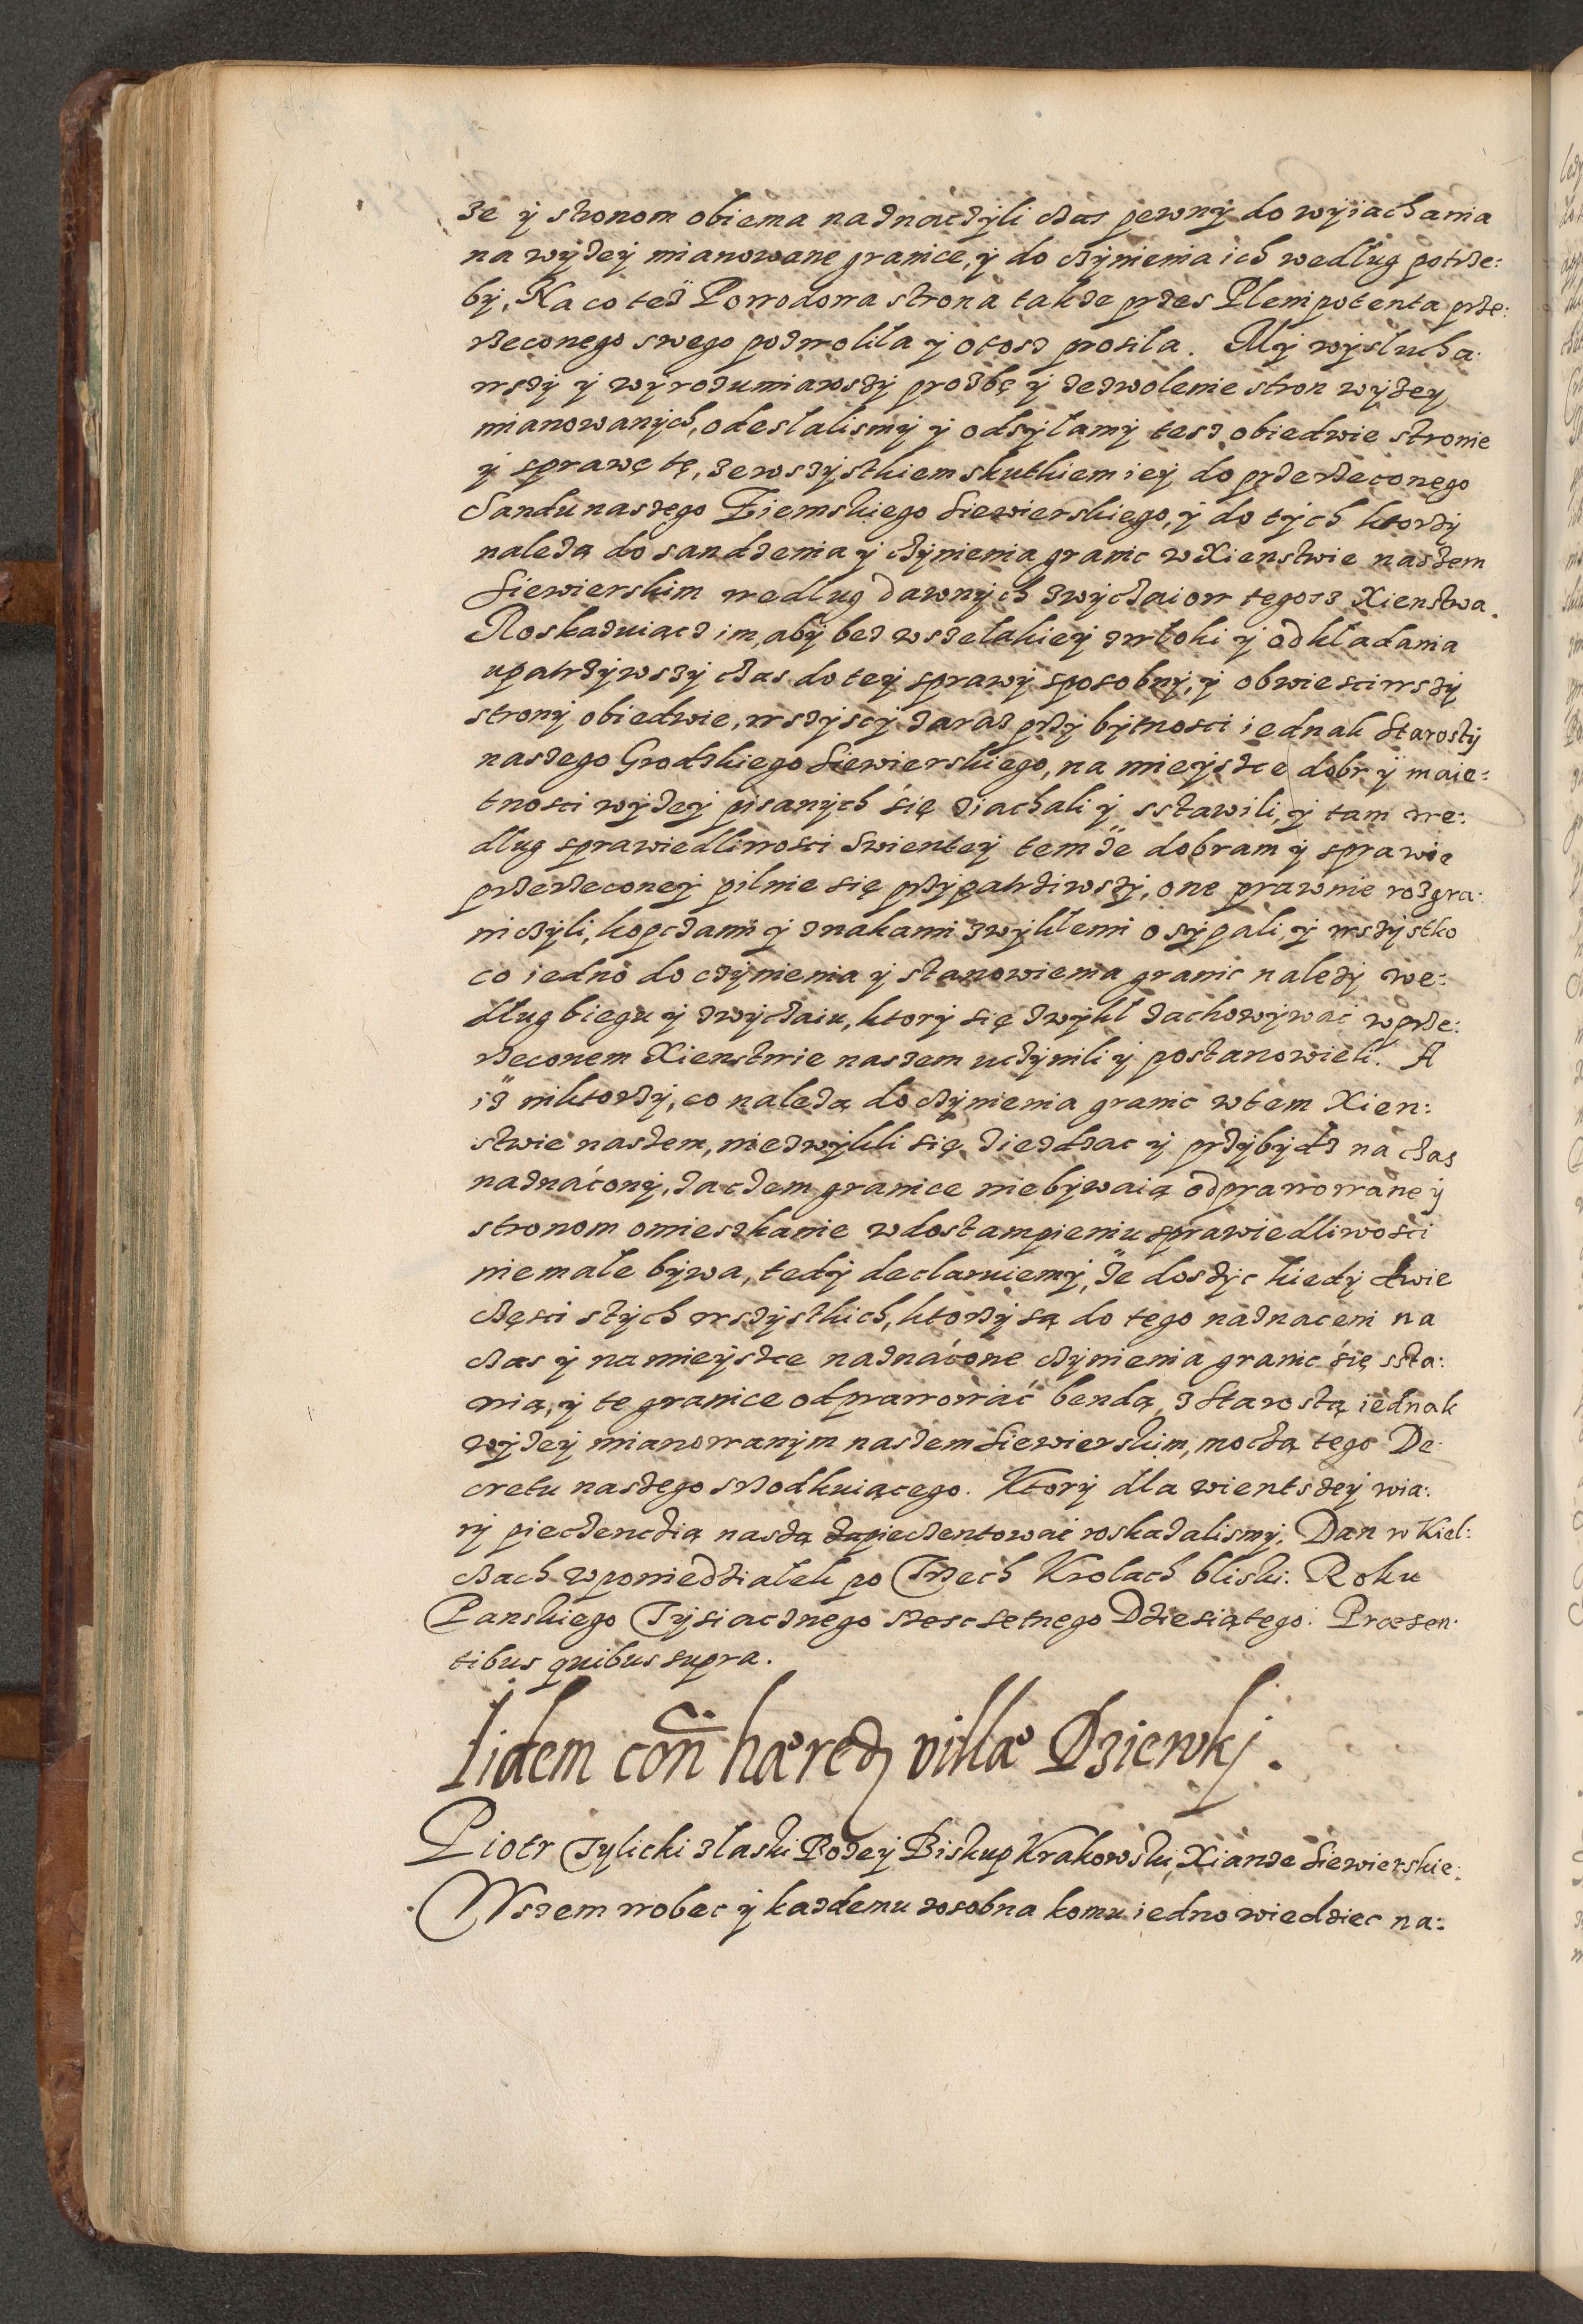 ze ÿ stronom obiema naznaczÿli czas pewnÿ do wyiachania
na wÿzeÿ mianowane granice, ÿ do czÿnienia ich według potrze:
bÿ, Na co też Powodowa strona także przes Plenipotenta prze:
rzeconego swego pozwoliła ÿ otosz prosiła. Mÿ wÿsłucha:
wszÿ ÿ wyrozumiawszÿ prozbę ÿ zezwolenie stron wÿzeÿ
mianowanÿch, odesłalismÿ ÿ odsÿłamÿ tesz obiedwie stronie
ÿ sprawę tę, ze wszÿstkiem skutkiem ieÿ do przerzeconego
Sandu naszego Ziemskiego Siewierskiego, ÿ do tÿch ktorzÿ
naleza do sandzenia ÿ czÿnienia granic w Xienstwie naszem
Siewierskim według dawnÿch zwÿczaiow tegosz Xienstwa.
Roskazuiacz im, abÿ bez wszelakieÿ zwłoki ÿ odkładania
upatrzÿwszÿ czas do teÿ sprawÿ sposobnÿ, ÿ obwiesciwszÿ
stronÿ obiedwie, wszÿscÿ zaraz przÿ bÿtnosci iednak Starostÿ
naszego Grodzkiego Siewierskiego, na mieÿsce dobr ÿ maie:
tnosci wÿzeÿ pisanÿch się ziachali ÿ sstawili, ÿ tam we:
dług sprawiedliwosci Swienteÿ temże dobram ÿ sprawie
przerzeconeÿ pilnie się przÿpatrziwszÿ, one prawnie rozgra:
niczÿli, kopczami ÿ znakami zwÿkłemi osÿpali, ÿ wszÿstko
co iedno do czÿnienia ÿ stanowienia granic nalezÿ we:
dług biegu ÿ zwÿczaiu, ktorÿ się zwÿkł zachowÿwać w prze:
rzeconem Xienstwie naszem uczÿnili ÿ postanowieli. A
iż niktorzÿ, co naleza do czÿnienia granic w tem Xien:
stwie naszem, niezwÿkli się ziezdzac ÿ przÿbÿdz na czas
naznáconÿ, zaczem granice niebÿwaią odprawowane ÿ
stronom omieszkanie w dostampieniu sprawiedliwosci
niemałe bÿwa, tedÿ declaruiemÿ, że doszÿc kiedÿ dwie
częsci stÿch wszÿstkich, ktorzÿ są do tego naznaceni na
czas ÿ na mieÿsce naznácone czÿnienia granic się ssta:
wią, ÿ te granice odprawować bendą, z Starostą iednak
wÿzeÿ mianowanÿm naszem Siewierskim, moczą tego De:
cretu naszego srzodkuiącego. Ktorÿ dla wientszeÿ wia:
rÿ pieczenczią naszą zapieczentowac roskazalismÿ. Dan w Kiel:
czach w poniedziałek po Trzech Krolach bliski: Roku
Panskiego Tÿsiacznego szescsetnego Dziesiątego. Præsen:
tibus quibus supra.
Iidem coñ hæred villæ Dziewkj.
Piotr Tylicki z łaski Bozeÿ Biskup Krakowski, Xianze Siewierskie:
Wszem wobec ÿ kazdemu zosobna komu iedno wiedziec na: